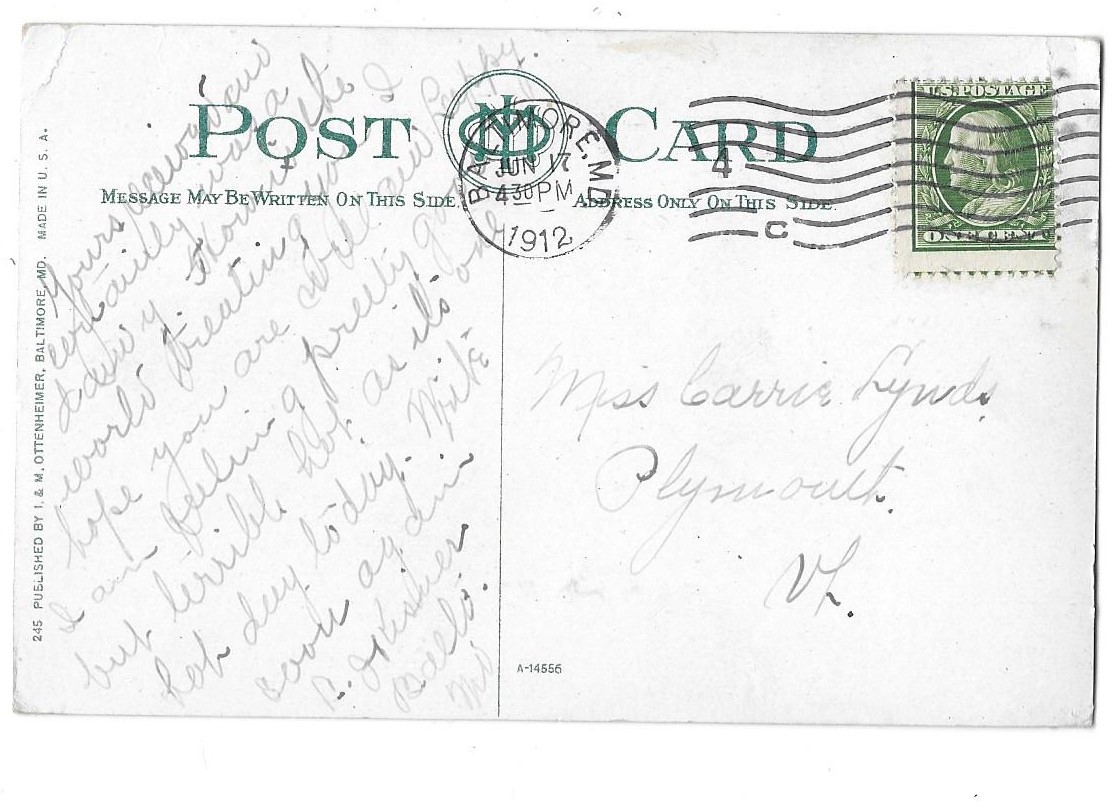 POST CARD
MESSAGE MAY BE WRITTEN ON THIS SIDE.
ADDRESS ONLY ON THIS SIDE.
BALTIMORE, MD
JUN 17
430 PM
1912
4
C
U.S. POSTAGE
ONE CENT
245 PUBLISHED BY I. & M. OTTENHEIMER, BALTIMORE, MD. MADE IN U. S. A.
Yours received and
certainly was a
dandy. How is the
world treating you I
hope you are well and happy.
I am feeling pretty good
but terrible hot as its one
hot day today. Write
soon again
Balto.
Md
Miss Carrie Lynds
Plymouth.
Vt.
A-14556